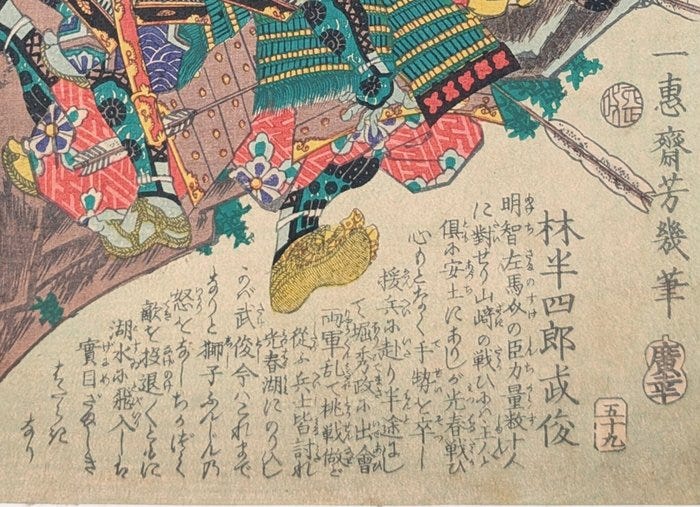 一惠齋芳幾筆
廣幸
五十九
林半四郎武俊
明智左馬介の臣力量数十人
に對せり山﨑の戦ひにハ主人と
俱に安土にありしが光春戦ひ
心もとなく手勢を卒し
援兵に赴り半途にし
て堀秀政に出會
両軍乱て挑戦做ど
從ふ兵士皆討れ
光春湖にのり入し
かバ武俊今ハこれまで
なりと獅子ふんじんの
怒をなしちかづく
敵を投退くとともに
湖水に飛入しハ
實目ざましき
はたらき
なり